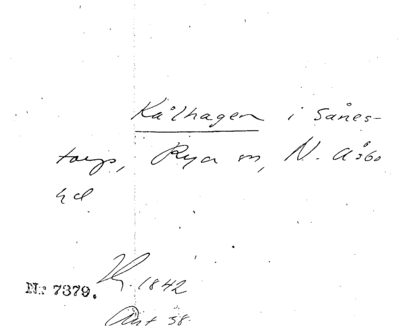 Kålhagen i Sånes-
torp, Rya sn, N. Åsbo
hd
Nr 7379.
1842
Avst 38